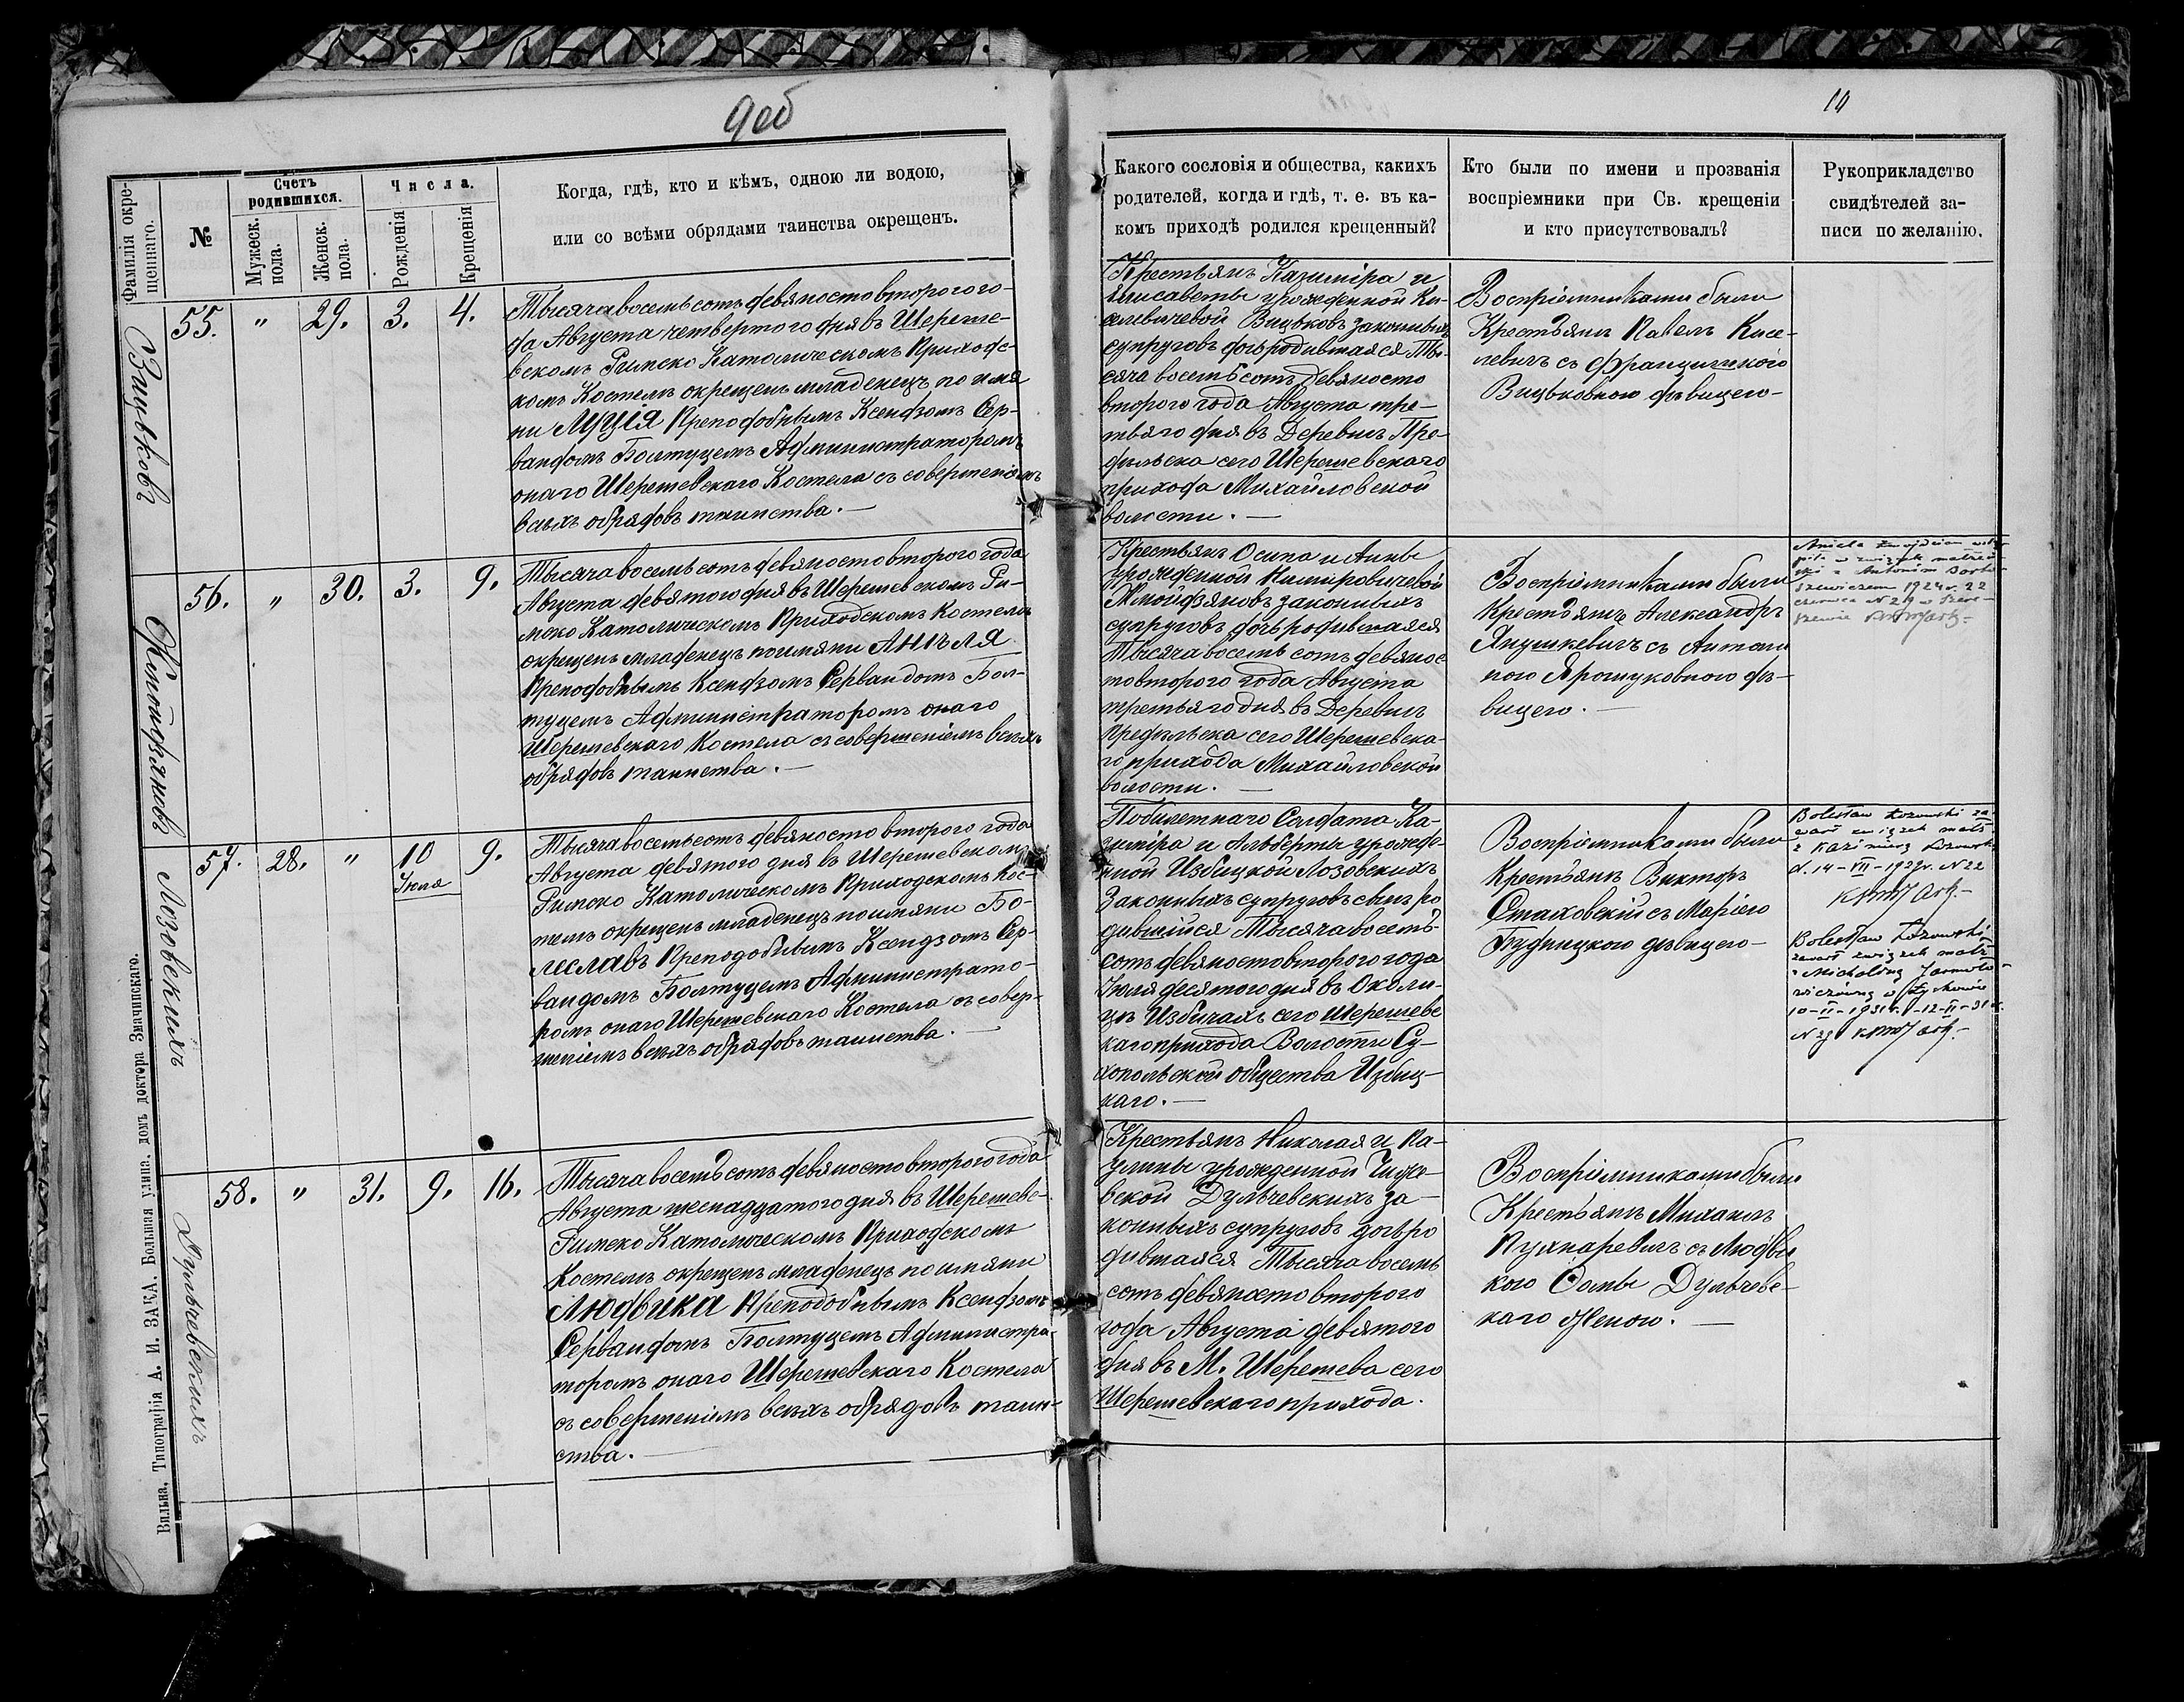 9об
10
Фамилія окре-
щеннаго.
№
Счетъ
родившихся.
Мужеск.
пола.
Женск.
пола.
Числа.
Рожденія
Крещенія
Когда, гдѣ, кто и кѣмъ, одною ли водою,
или со всѣми обрядами таинства окрещенъ.
Какого сословія и общества, какихъ
родителей, когда и гдѣ, т. е. въ ка-
комъ приходѣ родился крещенный?
Кто были по имени и прозванія
воспріемники при Св. крещеніи
и кто присутствовалъ?
Рукоприкладство
свидѣтелей за-
писи по желанію.
Вицьковъ
55.
"
29.
3.
4.
Тысяча восемь сотъ девяносто второго го-
да Августа четвертого дня въ Шереше-
вскомъ Римско Католическомъ Приходс-
комъ Костелѣ окрещенъ младенецъ по имя
ни Луція Преподобнымъ Ксендзомъ Сер-
вандомъ Болтуцемъ Администраторомъ
онаго Шерешевскаго Костела съ совершеніемъ
всѣхъ обрядовъ таинства. —
Крестьянъ Казиміра и
Елисаветы урожденной Ки-
селевичевой Вицьковъ законныхъ
супруговъ дочь родившаяся Ты-
сяча восемь сотъ девяносто
второго года Августа тре-
тьяго дня въ Деревнѣ Пре-
дѣльска сего Шерешевскаго
прихода Михайловской
волости. —
Воспріемниками были
Крестьянъ Павелъ Кисе-
левичъ съ Францишкою
Вицьковною дѣвицею —
56.
"
30.
3.
9.
Тысяча восемь сотъ девяносто второго года
Августа девятого дня въ Шерешевскомъ Ри-
мско Католическомъ Приходскомъ Костелѣ
окрещенъ младенецъ по имяни Анѣля
Преподобнымъ Ксендзомъ Сервандомъ Бол-
туцемъ Администраторомъ онаго
Шерешевскаго Костела съ совершеніемъ всѣхъ
обрядовъ таинства. —
Крестьянъ Осипа и Анны
урожденной
законныхъ
супруговъ дочь родившаяся
Тысяча восемь сотъ девянос
то второго года Августа
третьяго дня въ Деревнѣ
Предѣльска сего Шерешевска-
го прихода Михайловской
волости. —
Воспріемниками были
Крестьянъ Александръ
Янушкевичъ съ Антони
ною Ярошуковною дѣ-
вицею. —
Aniela
w związek małżeń-
ski z Antonim
1924 r. 22
czerwca N 29 w Szere-
szewie
Лозовскихъ
57.
28.
"
10
Іюля
9.
Тысяча восемьсотъ девяносто второго года
Августа девятого дня въ Шерешевскомъ
Римско Католическомъ Приходскомъ Кос-
телѣ окрещенъ младенецъ по имяни Бо-
леславъ Преподобнымъ Ксендзомъ Сер-
вандомъ Болтуцемъ Администрато-
ромъ онаго Шерешевскаго Костела съ совер-
шеніемъ всѣхъ обрядовъ таинства. —
Побилетнаго Солдата Ка-
зиміра и Альберты урожде-
нной Избицкой Лозовскихъ
Законныхъ супруговъ сынъ ро
дившійся Тысяча восемь
сотъ девяносто второго года
Іюля десятого дня въ Околи-
цѣ Избицахъ сего Шерешевс
каго прихода Волости Су-
хопольской общества Избиц-
каго. —
Воспріемниками были
Крестьянъ Викторъ
Стаховскій съ Маріею
Будницкою дѣвицею —
Bolesław Łozowski za
warł związek małż.
z Kazimierą
d. 14 - VII - 1929 r. N 22
Bolesław Łozowski
zawarł związek małż
z Michaliną Jarmoło-
wiczówną w
10-II-1931 r.
N 29
Дульчевскихъ
58.
"
31.
9.
16.
Тысяча восемь сотъ девяносто второго года
Августа шеснадцатого дня въ Шерешевс-
Римско Католическомъ Приходскомъ
Костелѣ окрещенъ младенецъ по имяни
Людвика Преподобнымъ Ксендзомъ
Сервандомъ Болтуцемъ Администра-
торомъ онаго Шерешевскаго Костела
съ совершеніемъ всѣхъ обрядовъ таин-
ства. —
Крестьянъ Николая и Па-
улины урожденной
вской Дульчевскихъ за-
конныхъ супруговъ дочь ро
дившаяся Тысяча восемь
сотъ девяносто второго
года Августа девятого
дня въ М. Шерешева сего
Шерешевскаго прихода.
Воспріемниками были
Крестьянъ Михаилъ
Пухнаревичъ съ Людви
кою Фомы Дульчевс-
каго Женою. —
Вильна, Типографія А. И. ЗАКА. Большая улица, домъ доктора Значинскаго.